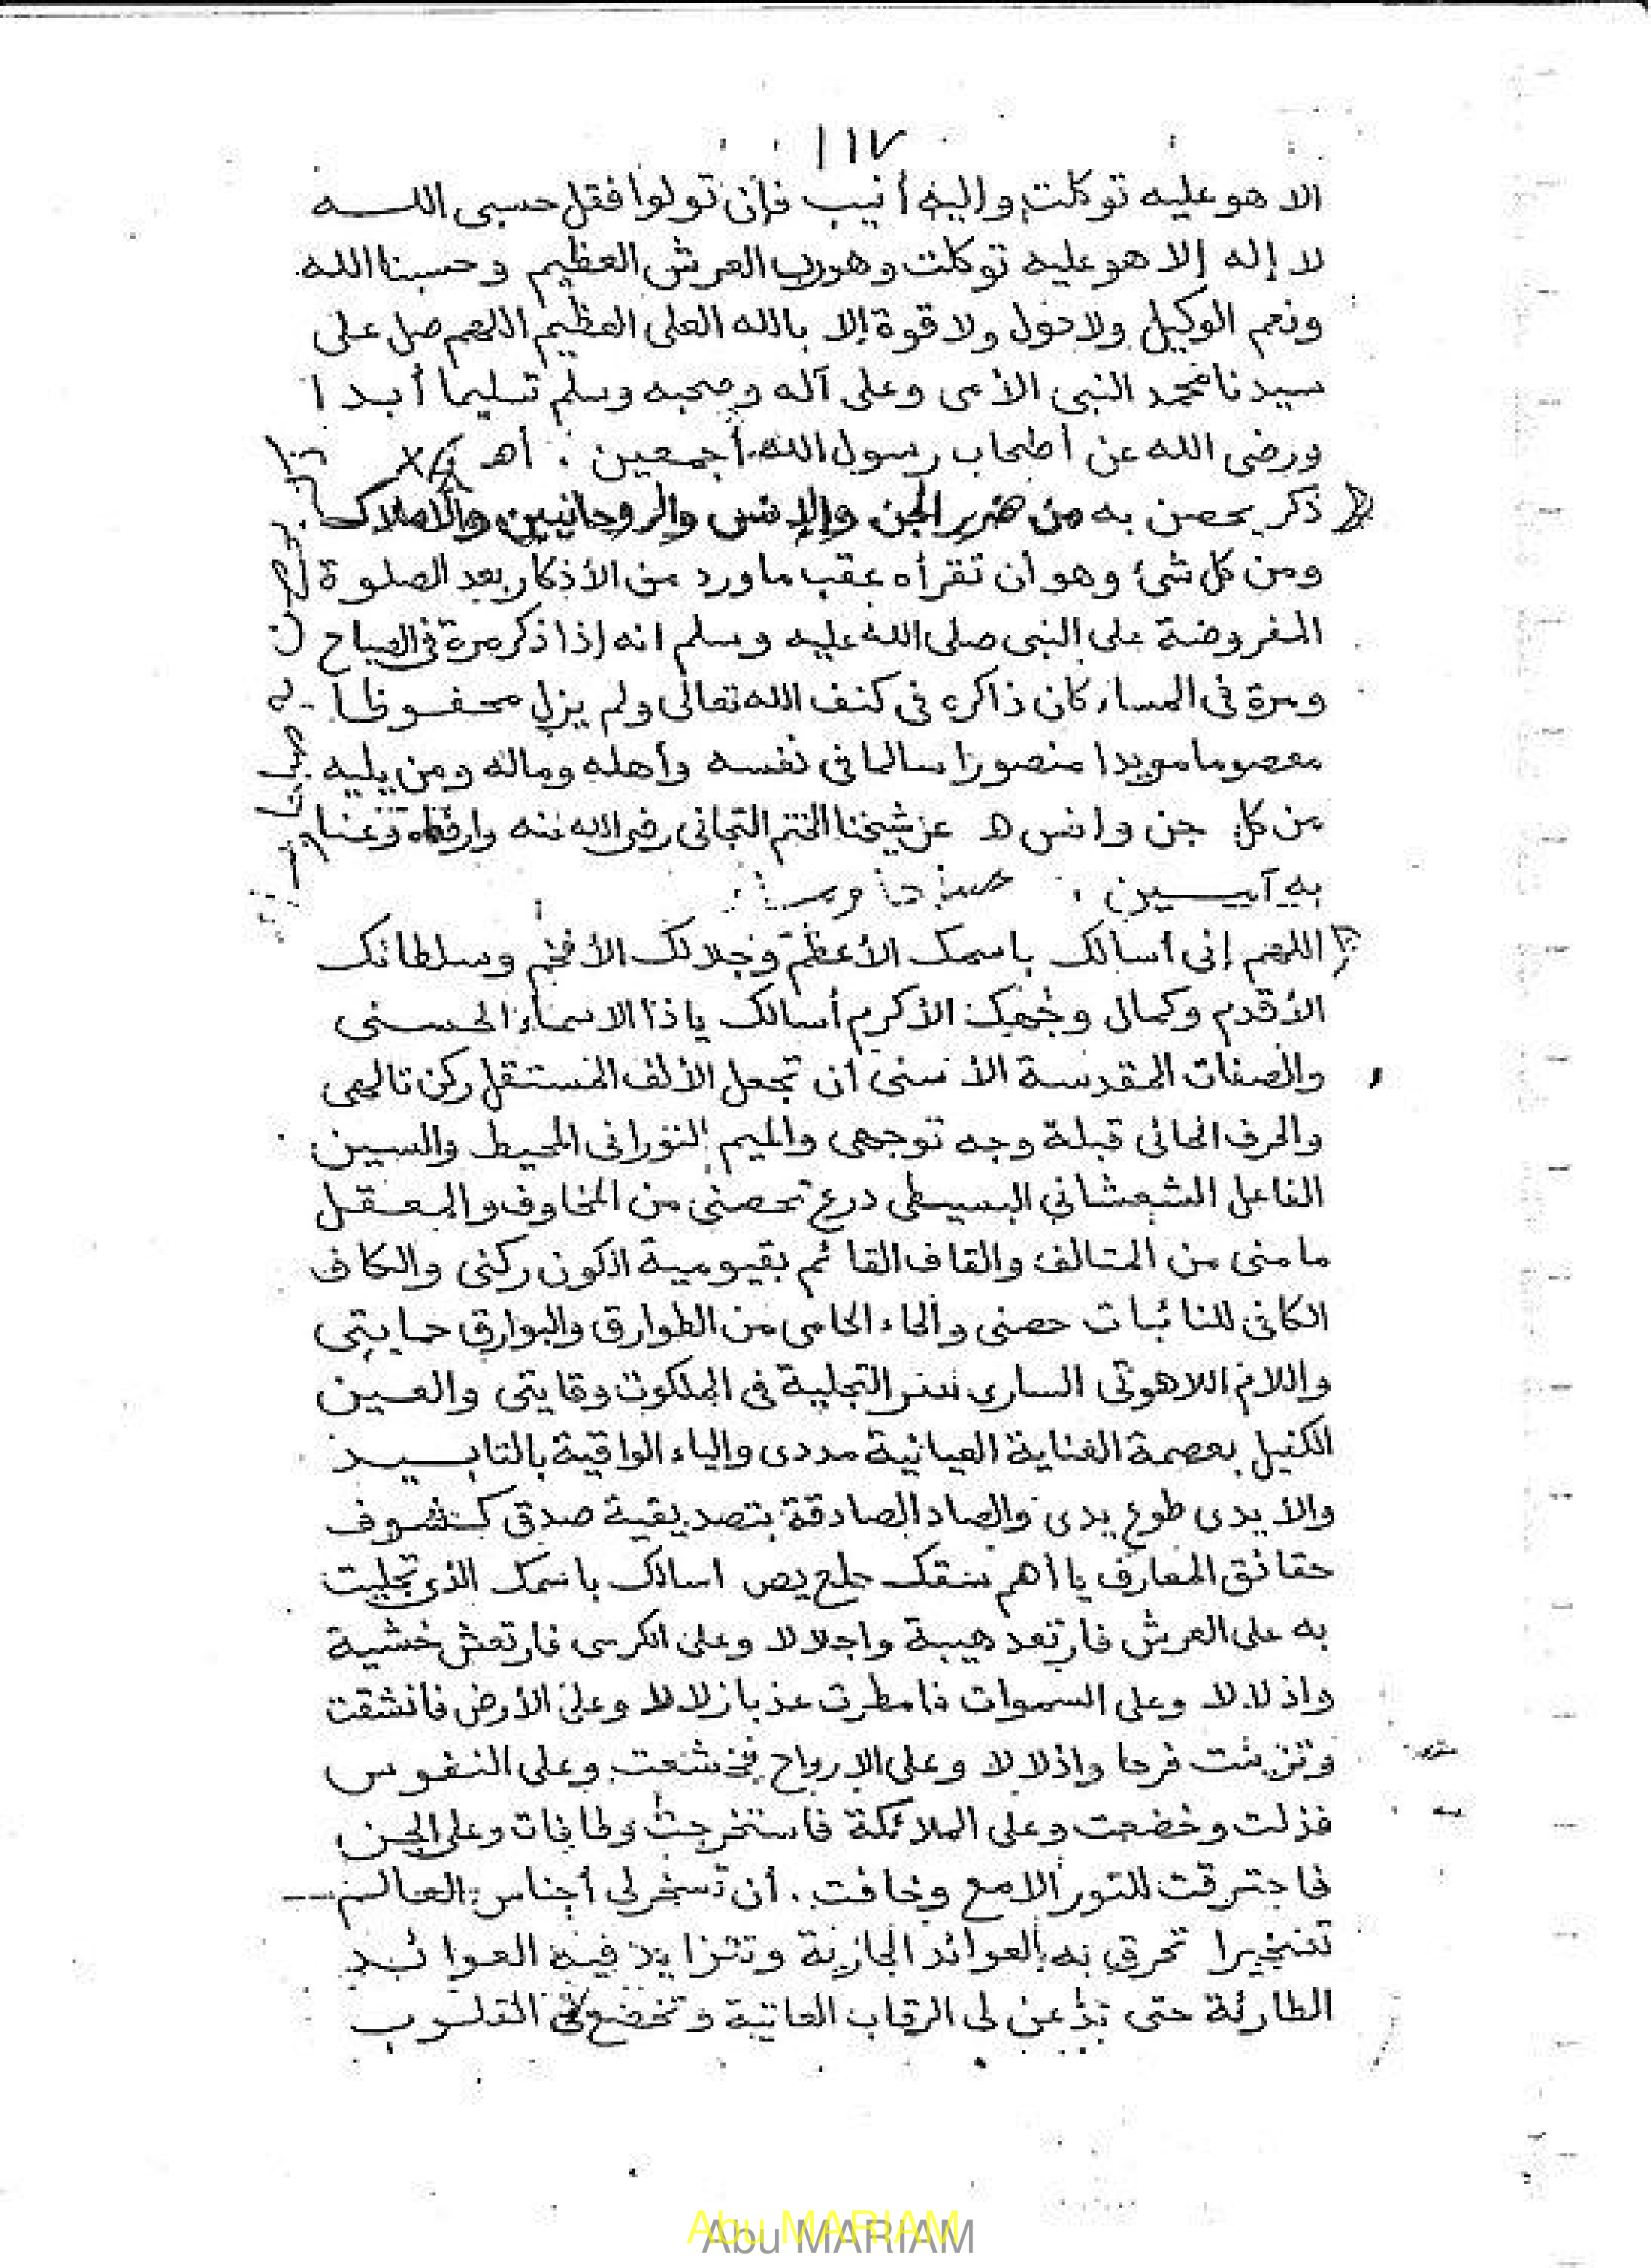 ١١٧
الا هو عليه توكلت وإليه أنيب فإن تولوا فقل حسبى اللـــه
لا إله إلا هو عليه توكلت وهو رب العرش العظيم وحسبنا الله
ونعم الوكيل ولا حول ولا قوة إلا بالله العلى العظيم اللهم صل على
سيدنا محمد النبى الأمى وعلى آله وصحبه وسلم تسليما أبدا
ورضى الله عن أصحاب رسول الله أجمعين . أهـ
ذكر يحصن به من ضرر الجن والإنس والروحانيين والأملاك
ومن كل شئ وهو أن تقرأه عقب ما ورد من الأذكار بعد الصلوة
المفروضة على النبى صلى الله عليه وسلم انه إذا ذكر مرة فى الصباح
ومرة فى المساء كان ذاكره فى كنف الله تعالى ولم يزل محفوظا
معصوما مويدا منصورا سالما فى نفسه وأهله وماله ومن يليه
من كل جن وانس هـ عن شيخنا الختم التجانى رضى الله عنه وارضاه وعنا
به آميــين . صباحا ومساء
ذكر يحصن به صباحا ومساء
اللهم إنى أسالك باسمك الأعظم وجلالك الأفخم وسلطانك
الأقدم وكمال وجهك الأكرم أسالك ياذا الاسماء الحسنى
والصفات المقدسة الأسنى ان تجعل الألف المستقل ركن تالهى
والحرف الحائى قبلة وجه توجهى والميم النورانى المحيط والسين
الفاعل الشعشانى البسيطى درع تحصنى من المخاوف والمعقل
مامنى من المتالف والقاف القائم بقيومية الكون ركنى والكاف
الكافى للنائبات حصنى والحاء الحامى من الطوارق والبوارق حمايتى
واللام اللاهوتى السارى التجلية فى الملكوت وقايتى والعين
الكفيل بعصمة العناية العيانية مددى والياء الواقية بالتابيــد
والا يدى طوع يدى والصاد الصادقة بتصديقية صدق كشوف
حقائق المعارف يا أهم سقك حلع يص اسالك باسمك الذى تجليت
به على العرش فارتعد هيبة واجلالا وعلى الكرسى فارتعش خشية
واذلالا وعلى السموات فامطرت عذبا زلالا وعلى الأرض فانشقت
وتزينت فرحا واذلالا وعلى الارواح فخشعت وعلى النفوس
فذلت وخضعت وعلى الملائكة فاستخرجت وعلى الجن
فاحترقت للنور الامع وخافت . أن تسخر لى أجناس العالم
تسخيرا تحرق به العوائد الجارية وتتزايد فيه العوائــد
الطارئة حتى تذعن لى الرقاب العاتية وتخضع لى القلوب
Abu MARIAM